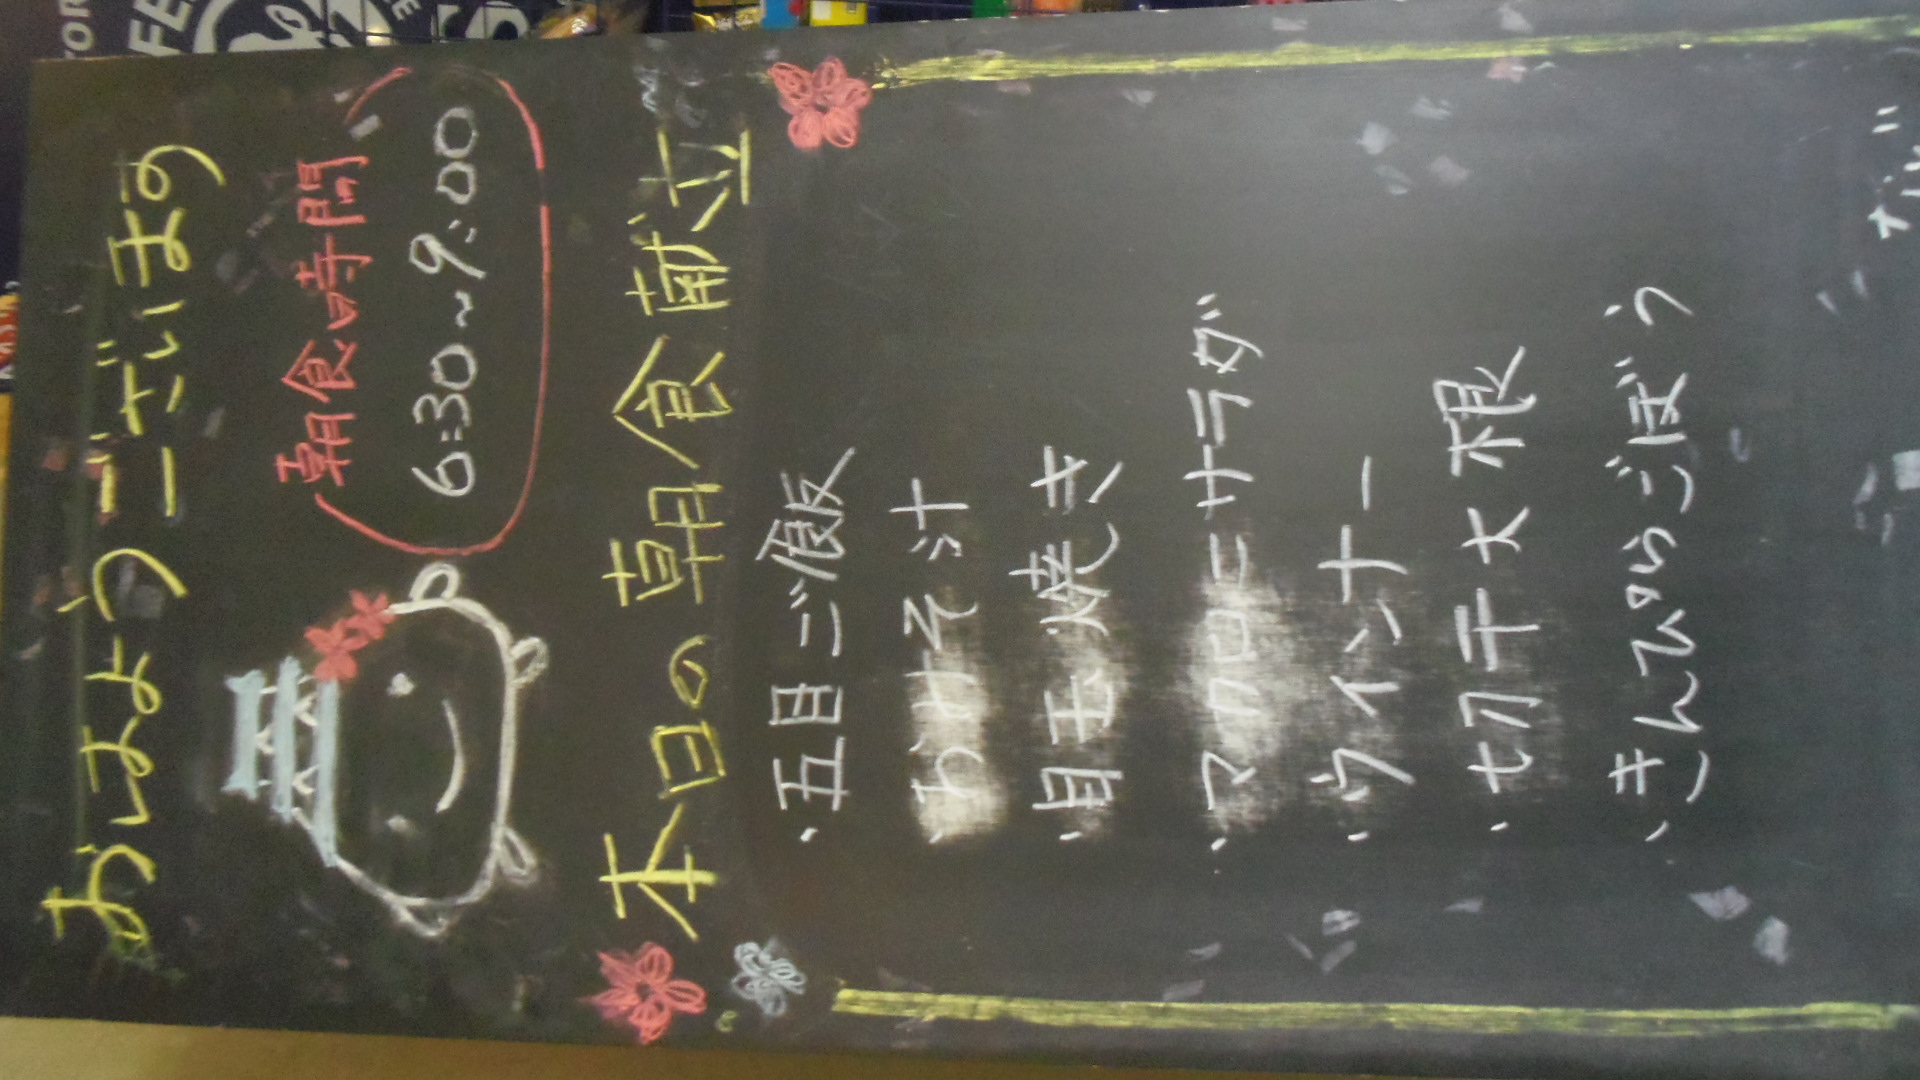 おはようございます
朝食時間
6:30~9:00
本日の朝食献立
・五目ご飯
・おみそ汁
・目玉焼き
・マカロニサラダ
・ウインナー
・切干大根
・きんぴらごぼう